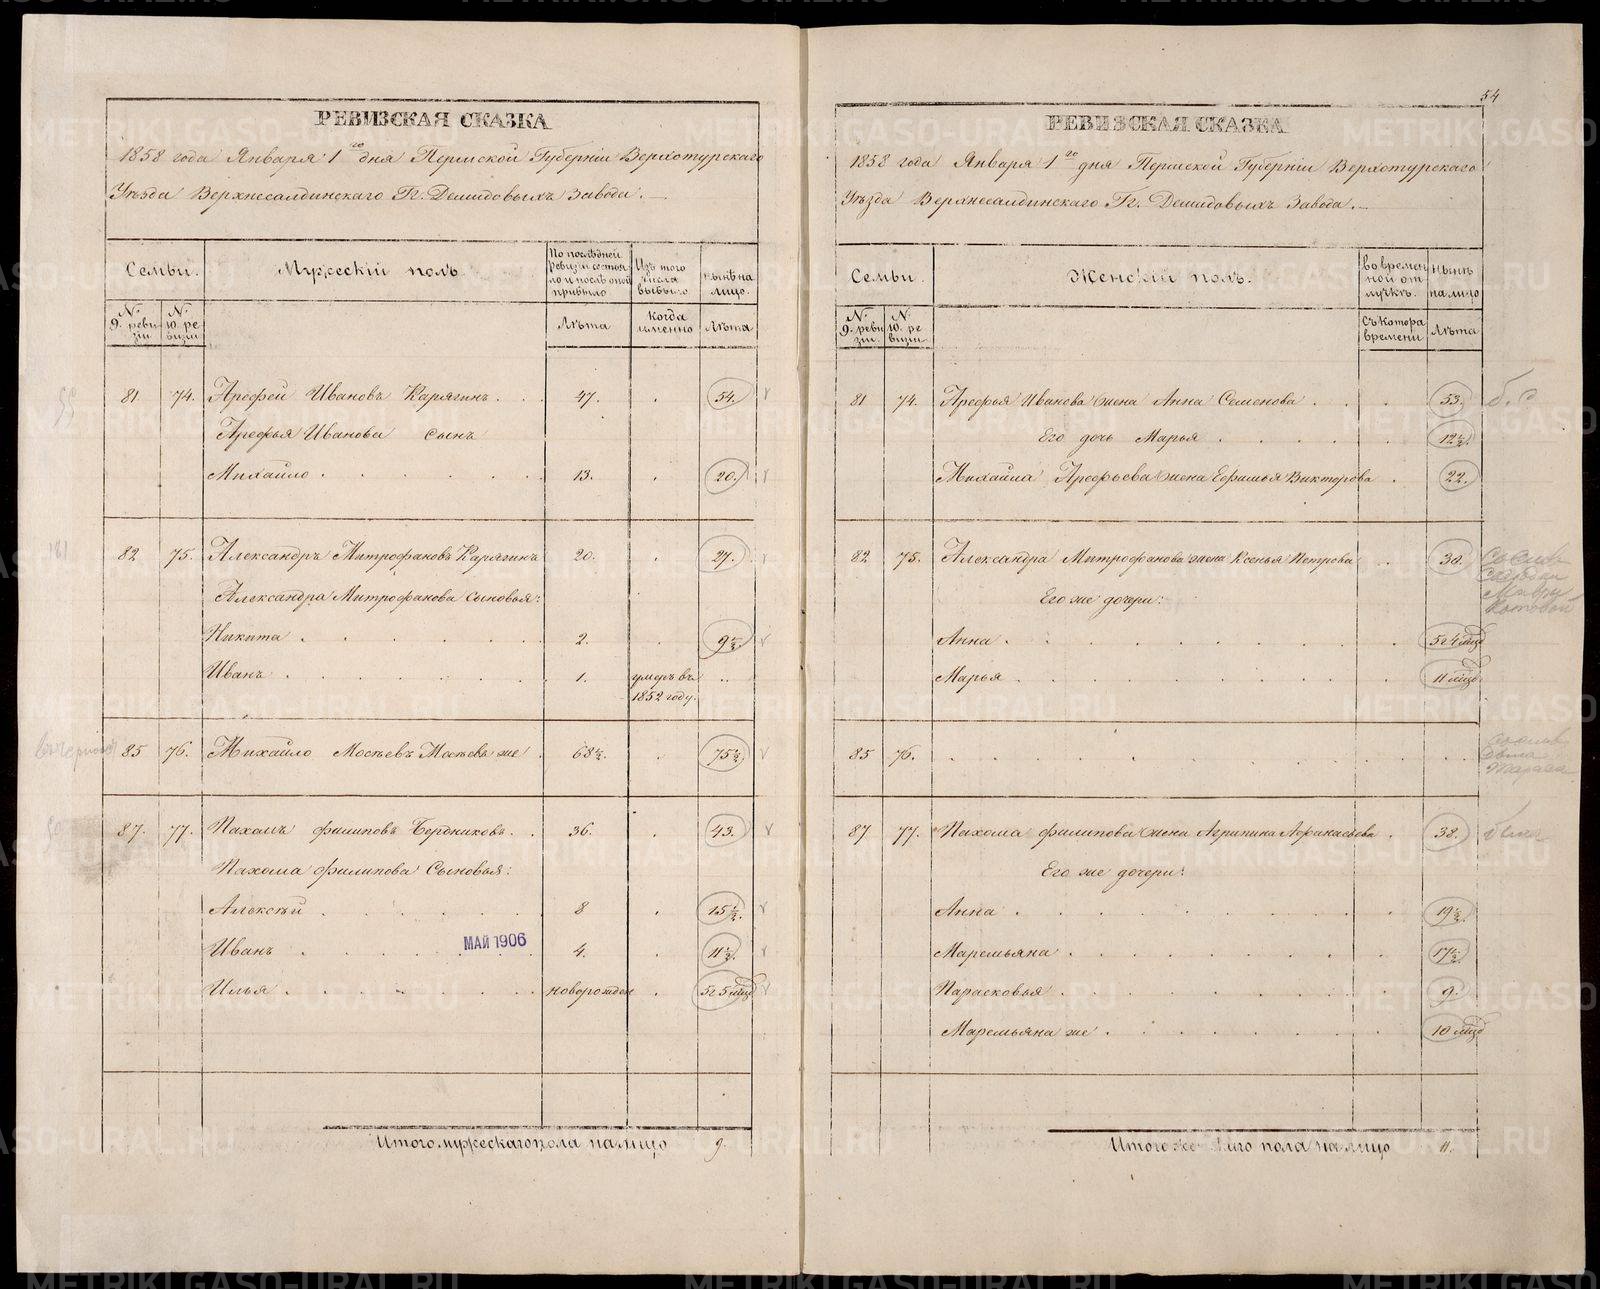 РЕВИЗСКАЯ СКАЗКА
1858 года Января 1го дня Пермской Губерніи Верхотурскаго
Уѣзда Верхнесалдинскаго Гг. Демидовыхъ Завода.
Семьи.
Мужескій полъ.
По послѣдней ревизіи состояло и послѣ оной прибыло.
Изъ того числа выбыло
нынѣ на лицо.
№ 9. ревизіи
№ 10. ревизіи
Лѣта
Когда именно
Лѣта
81. 74. Арефей Ивановъ Карягинъ. 47. 54.
Арефья Иванова сынъ
Михайло 13. 20.
82 75. Александръ Митрофановъ Карягинъ 20. 27.
Александра Митрофанова сыновья:
Никита 2. 9½
Иванъ 1. умеръ въ 1852 году.
85 76. Михайло Мосѣевъ Мосѣевъ же 68½. 75½
87. 77. Пахомъ Филиповъ Бердниковъ. 36. 43.
Пахома Филипова Сыновья:
Алексѣй 8 15½
Иванъ 4. 11½
МАЙ 1906
Илья новорожден 5 г 5 мѣц
Итого мужескаго пола на лицо 9.
54
РЕВИЗСКАЯ СКАЗКА
1858 года Января 1го дня Пермской Губерніи Верхотурскаго
Уѣзда Верхнесалдинскаго Гг. Демидовыхъ Завода.
Семьи.
Женскій полъ.
во временной отлучкѣ.
нынѣ на лицо
№ 9. ревизіи.
№ 10. ревизіи.
Съ котора времени
Лѣта
81 74. Арефья Иванова жена Анна Семенова 53.
Его дочь Марья 12½
Михайла Арефьева жена Ефимья Викторова 22.
82 75. Александра Митрофанова жена Ксенья Петрова 30.
Его же дочери:
Анна 5 г 4 мѣц
Марья 11 мѣц
85 76.
87 77. Пахома Филипова жена Агрипина Афанасьева 38.
Его же дочери:
Анна 19½
Маремьяна 17½
Парасковья 9
Маремьяна же 10 мѣц
Итого женскаго пола на лицо 11.
METRIKI.GASO-URAL.RU